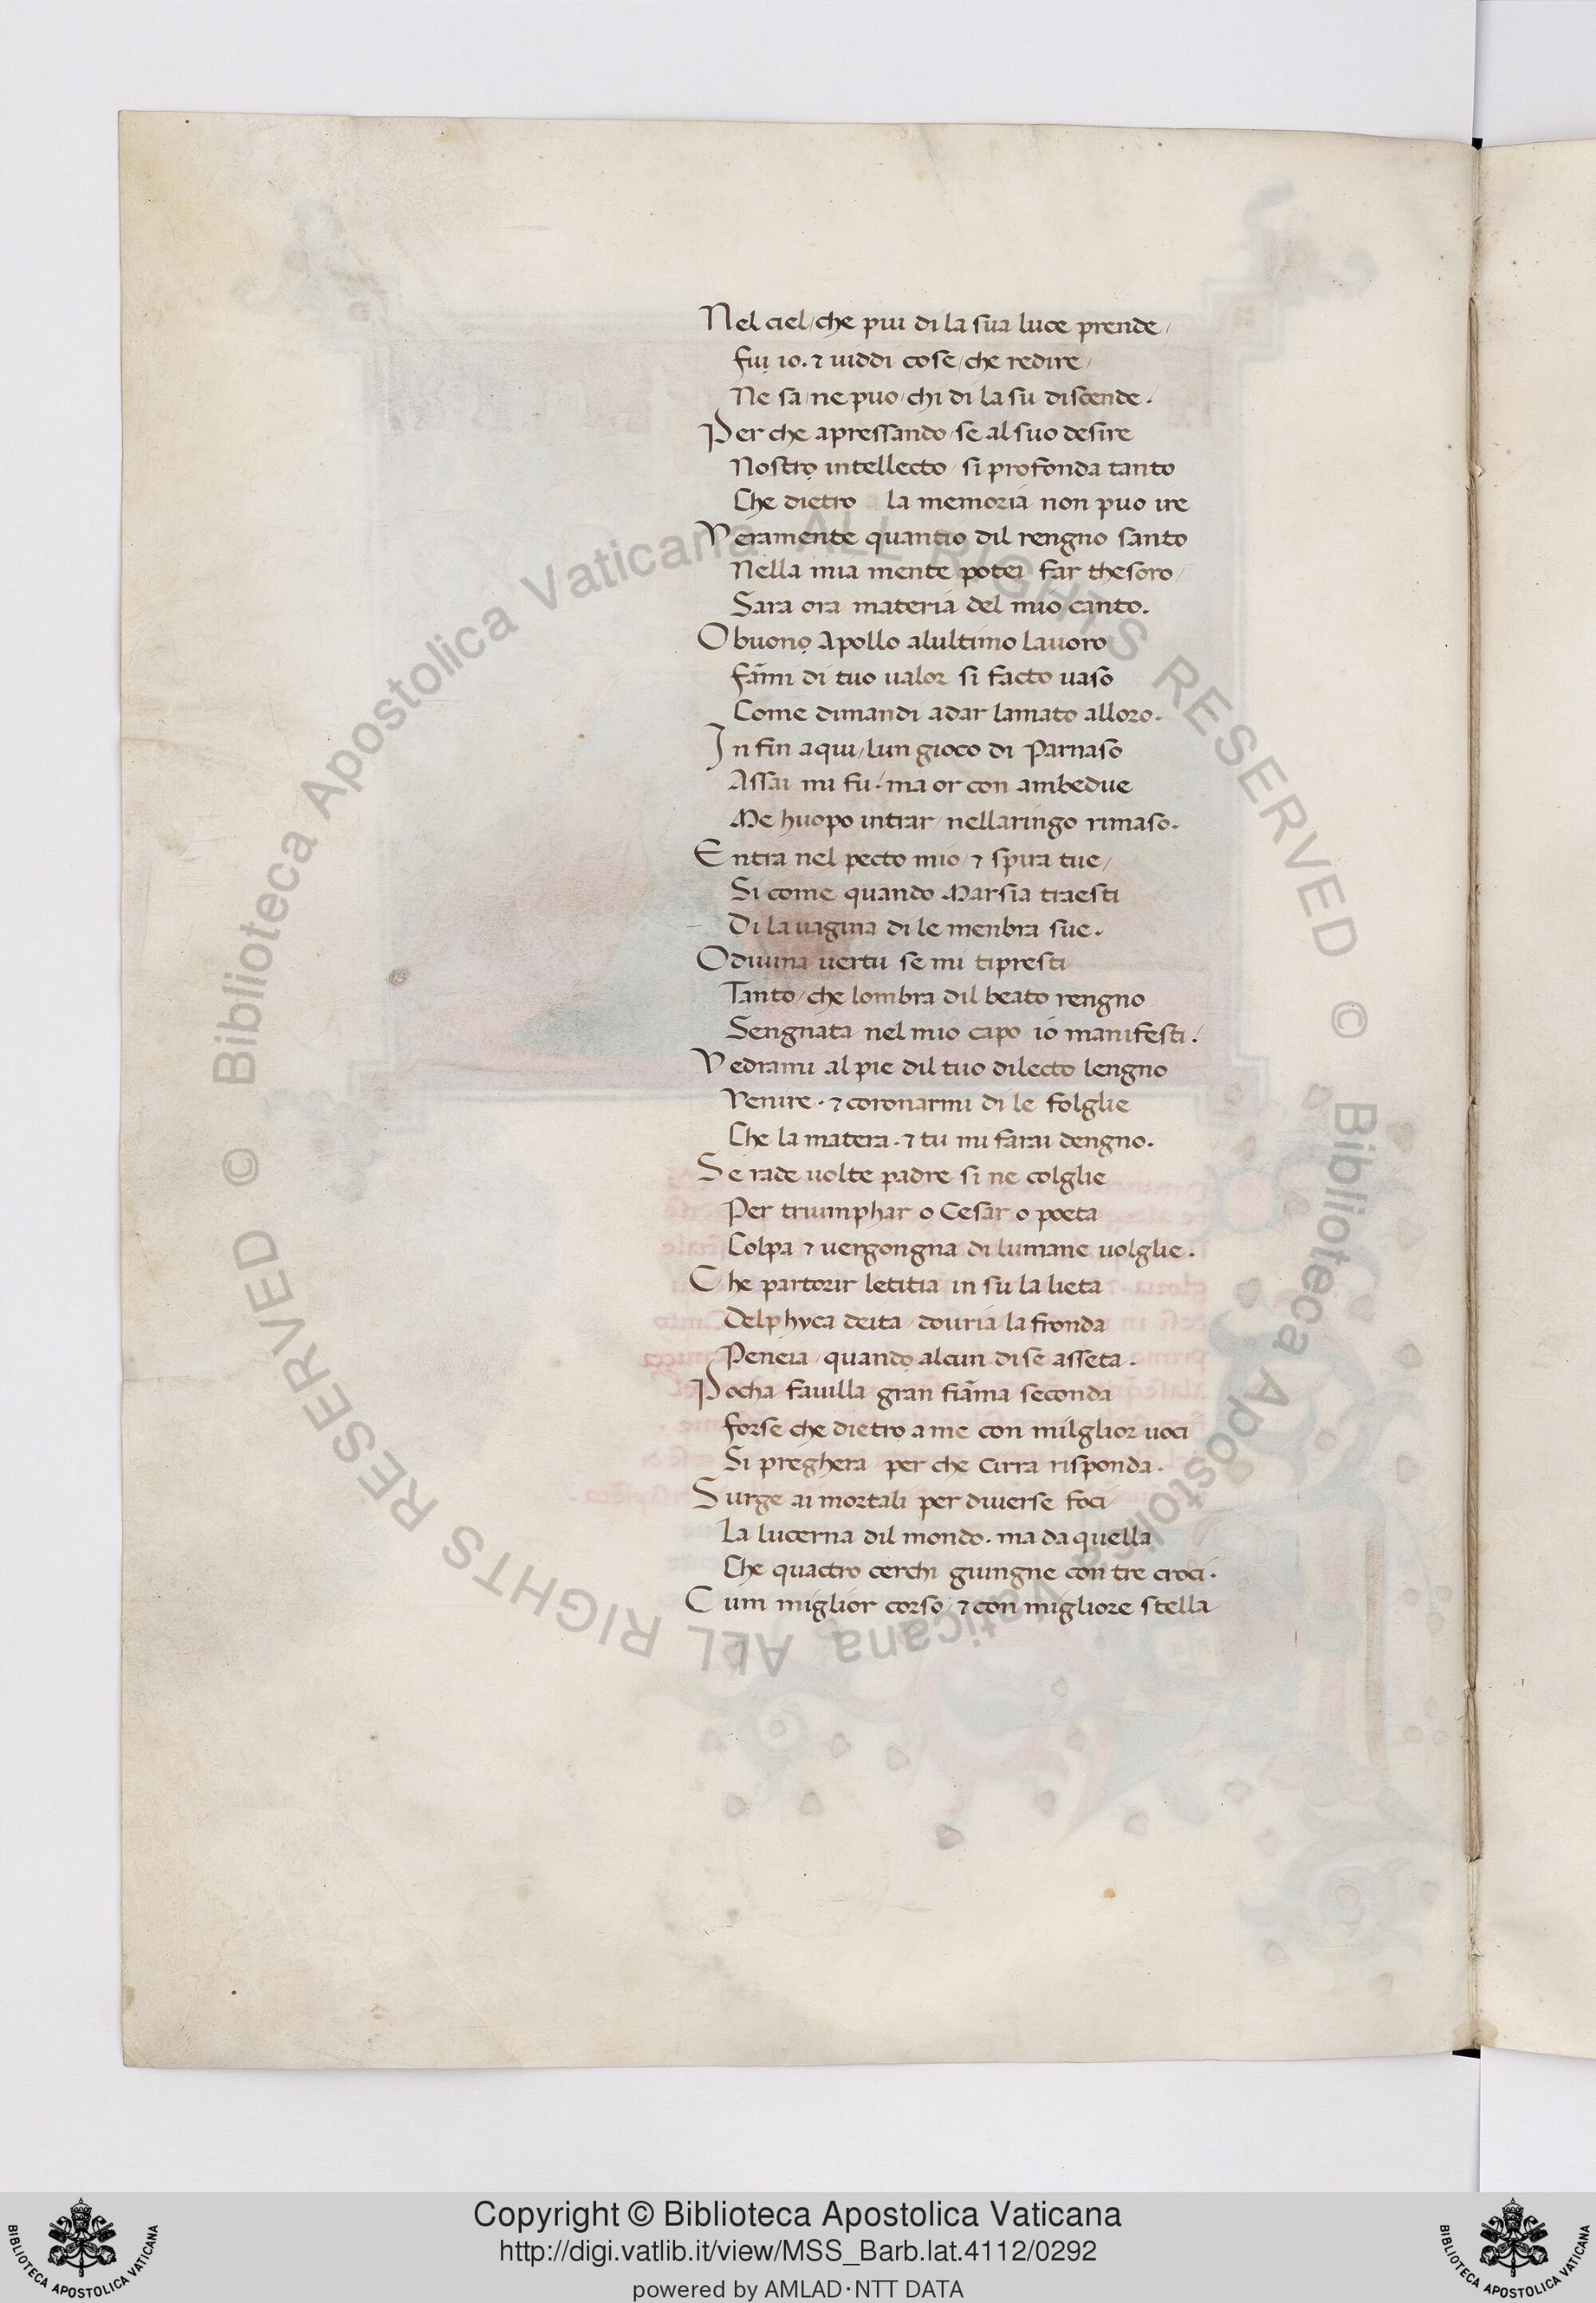 Nel ciel/che piu di la sua luce prende/
fui io. ⁊ uiddi cose/che redire/
Ne sa/ne puo/chi di la su discende.
Per che apressando/se al suo desire
Nostrọ intellecto/si profonda tanto
Che dietro la memoria non puo ire
Veramente quantio dil rengno santo
Nella mia mente potei far thesoro/
Sara ora materia del mio canto.
O buonọ Apollo alultimo lauoro
fam̄i di tuo ualor si facto uaso
Come dimandi adar lamato alloro.
In fin aqui/lun gioco di Parnaso
Assai mi fu. ma or con ambedue
Me huopo intrar/nellaringo rimaso.
Entra nel pecto mio/⁊ spira tue/
Si come quando Marsia traesti
Di la uagina di le menbra sue.
O diuina uertu se mi tipresti
Tanto/che lombra dil beato rengno
Sengnata nel mio capo io manifesti.
Vedrami al pie dil tuo dilecto lengno
Venire. ⁊ coronarmi di le folglie
Che la matera. ⁊ tu mi farai dengno.
Se rade uolte padre si ne colglie
Per triumphar o Cesar o poeta
Colpa ⁊ uergongna di lumane uolglie.
Che partorir letitia in su la lieta
Delphyca deita/douria la fronda
Peneia/quandọ alcun di se asseta.
Pocha fauilla gran fiam̄a seconda
forse che dietrọ a me con milglior uoci
Si preghera/per che Cirra risponda.
Surge ai mortali per diuerse foci
La lucerna dil mondo. ma da quella
Che quactro cerchi giungne con tre croci.
Cum miglior corso/⁊ con migliore stella
© Biblioteca Apostolica Vaticana ALL RIGHTS RESERVED © Biblioteca Apostolica Vaticana ALL RIGHTS RESERVED
Copyright © Biblioteca Apostolica Vaticana
http://digi.vatlib.it/view/MSS_Barb.lat.4112/0292
powered by AMLAD·NTT DATA
BIBLIOTECA APOSTOLICA VATICANA
BIBLIOTECA APOSTOLICA VATICANA